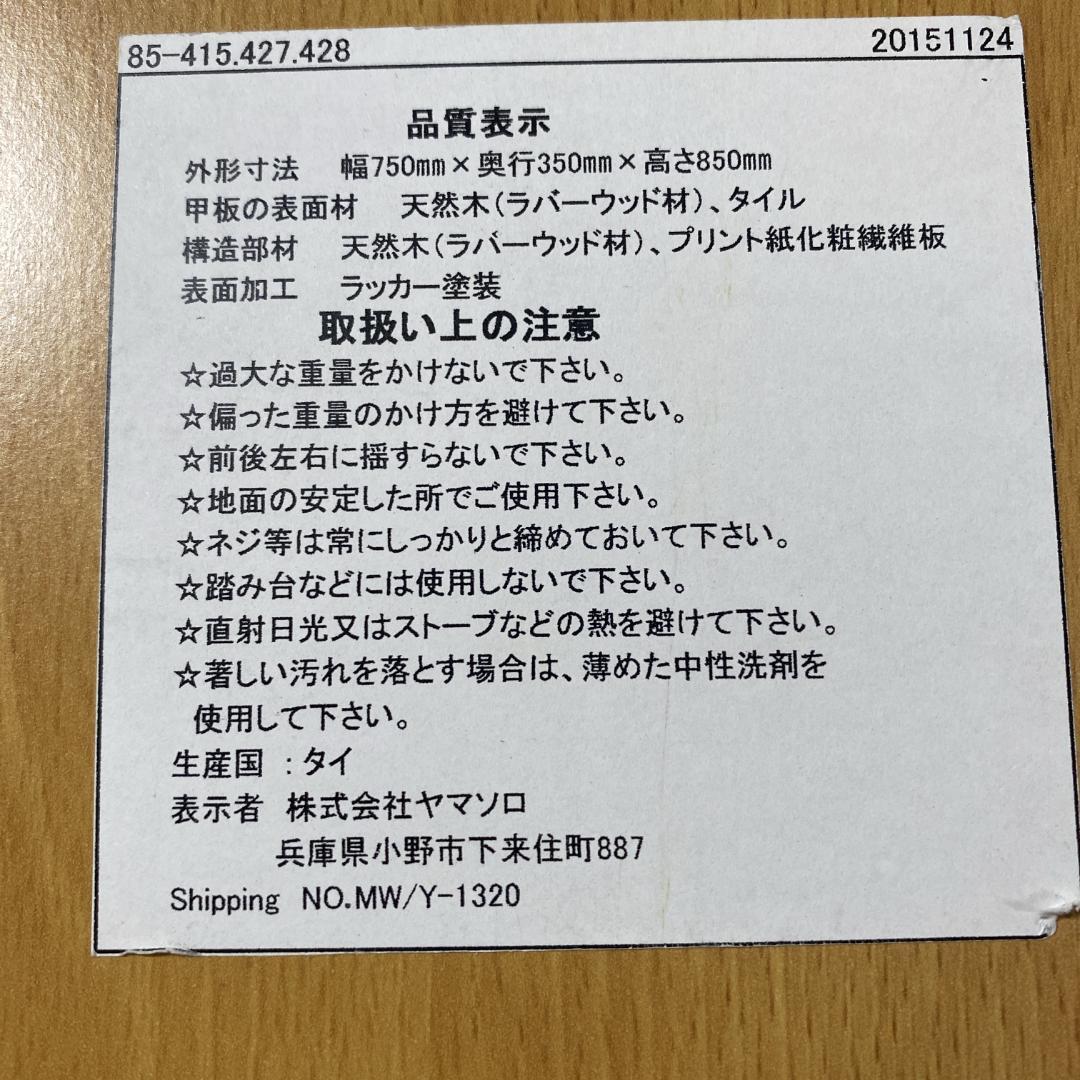 85-415.427.428
20151124
品質表示
外形寸法 幅750mm×奥行350mm×高さ850mm
甲板の表面材 天然木(ラバーウッド材)、タイル
構造部材 天然木(ラバーウッド材)、プリント紙化粧繊維板
表面加工 ラッカー塗装
取扱い上の注意
☆過大な重量をかけないで下さい。
☆偏った重量のかけ方を避けて下さい。
☆前後左右に揺すらないで下さい。
☆地面の安定した所でご使用下さい。
☆ネジ等は常にしっかりと締めておいて下さい。
☆踏み台などには使用しないで下さい。
☆直射日光又はストーブなどの熱を避けて下さい。
☆著しい汚れを落とす場合は、薄めた中性洗剤を
使用して下さい。
生産国 : タイ
表示者 株式会社ヤマソロ
兵庫県小野市下来住町887
Shipping NO.MW/Y-1320